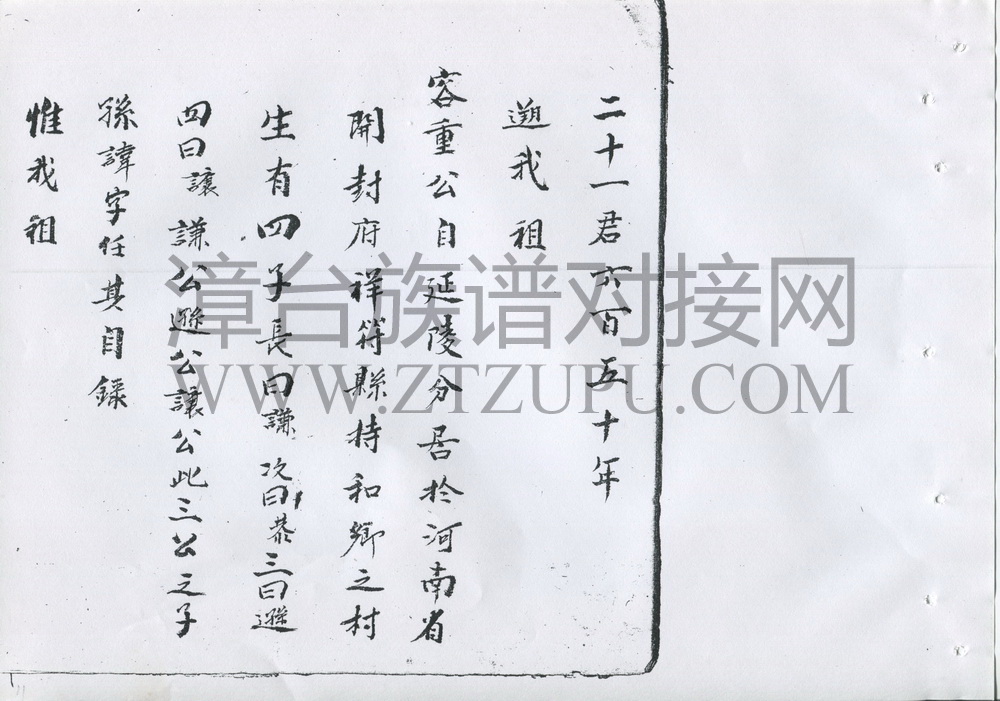 二十一君六百五十年
遡我祖
容重公自延陵分居於河南省
開封府祥符縣持和鄉之村
生有四子長曰謙次曰恭三曰遜
四曰讓謙公遜公讓公此三公之子
孫諱字任其目錄
惟我祖
漳台族谱对接网
WWW.ZTZUPU.COM